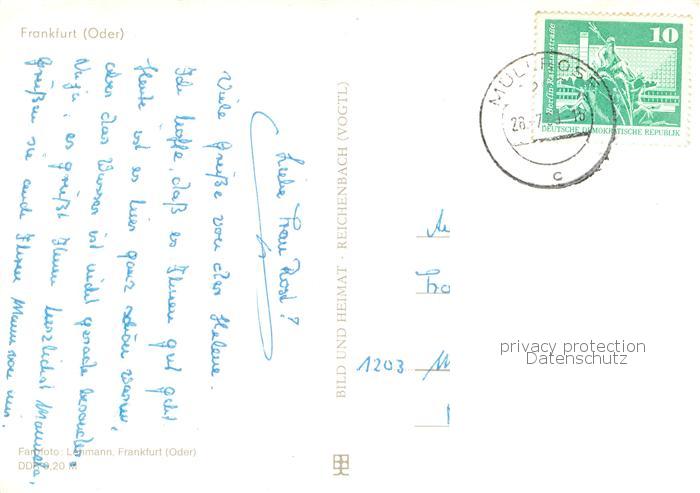 Frankfurt (Oder)
Liebe Frau Rost!
Viele Grüße von der Helene.
Ich hoffe, daß es Ihnen gut geht
Heute ist es hier ganz schön warm,
aber das Wasser ist nicht gerade besonders
Naja, es grüßt Ihnen herzlichst
Grüßen sie auch Ihren Mann von mir.
Farbfoto: Lehmann, Frankfurt (Oder)
DDR 0,20 M
BILD UND HEIMAT · REICHENBACH (VOGTL)
10
Berlin-Rathausstraße
DEUTSCHE DEMOKRATISCHE REPUBLIK
MÜLLROSE
c
An
Fra
1203
privacy protection
Datenschutz